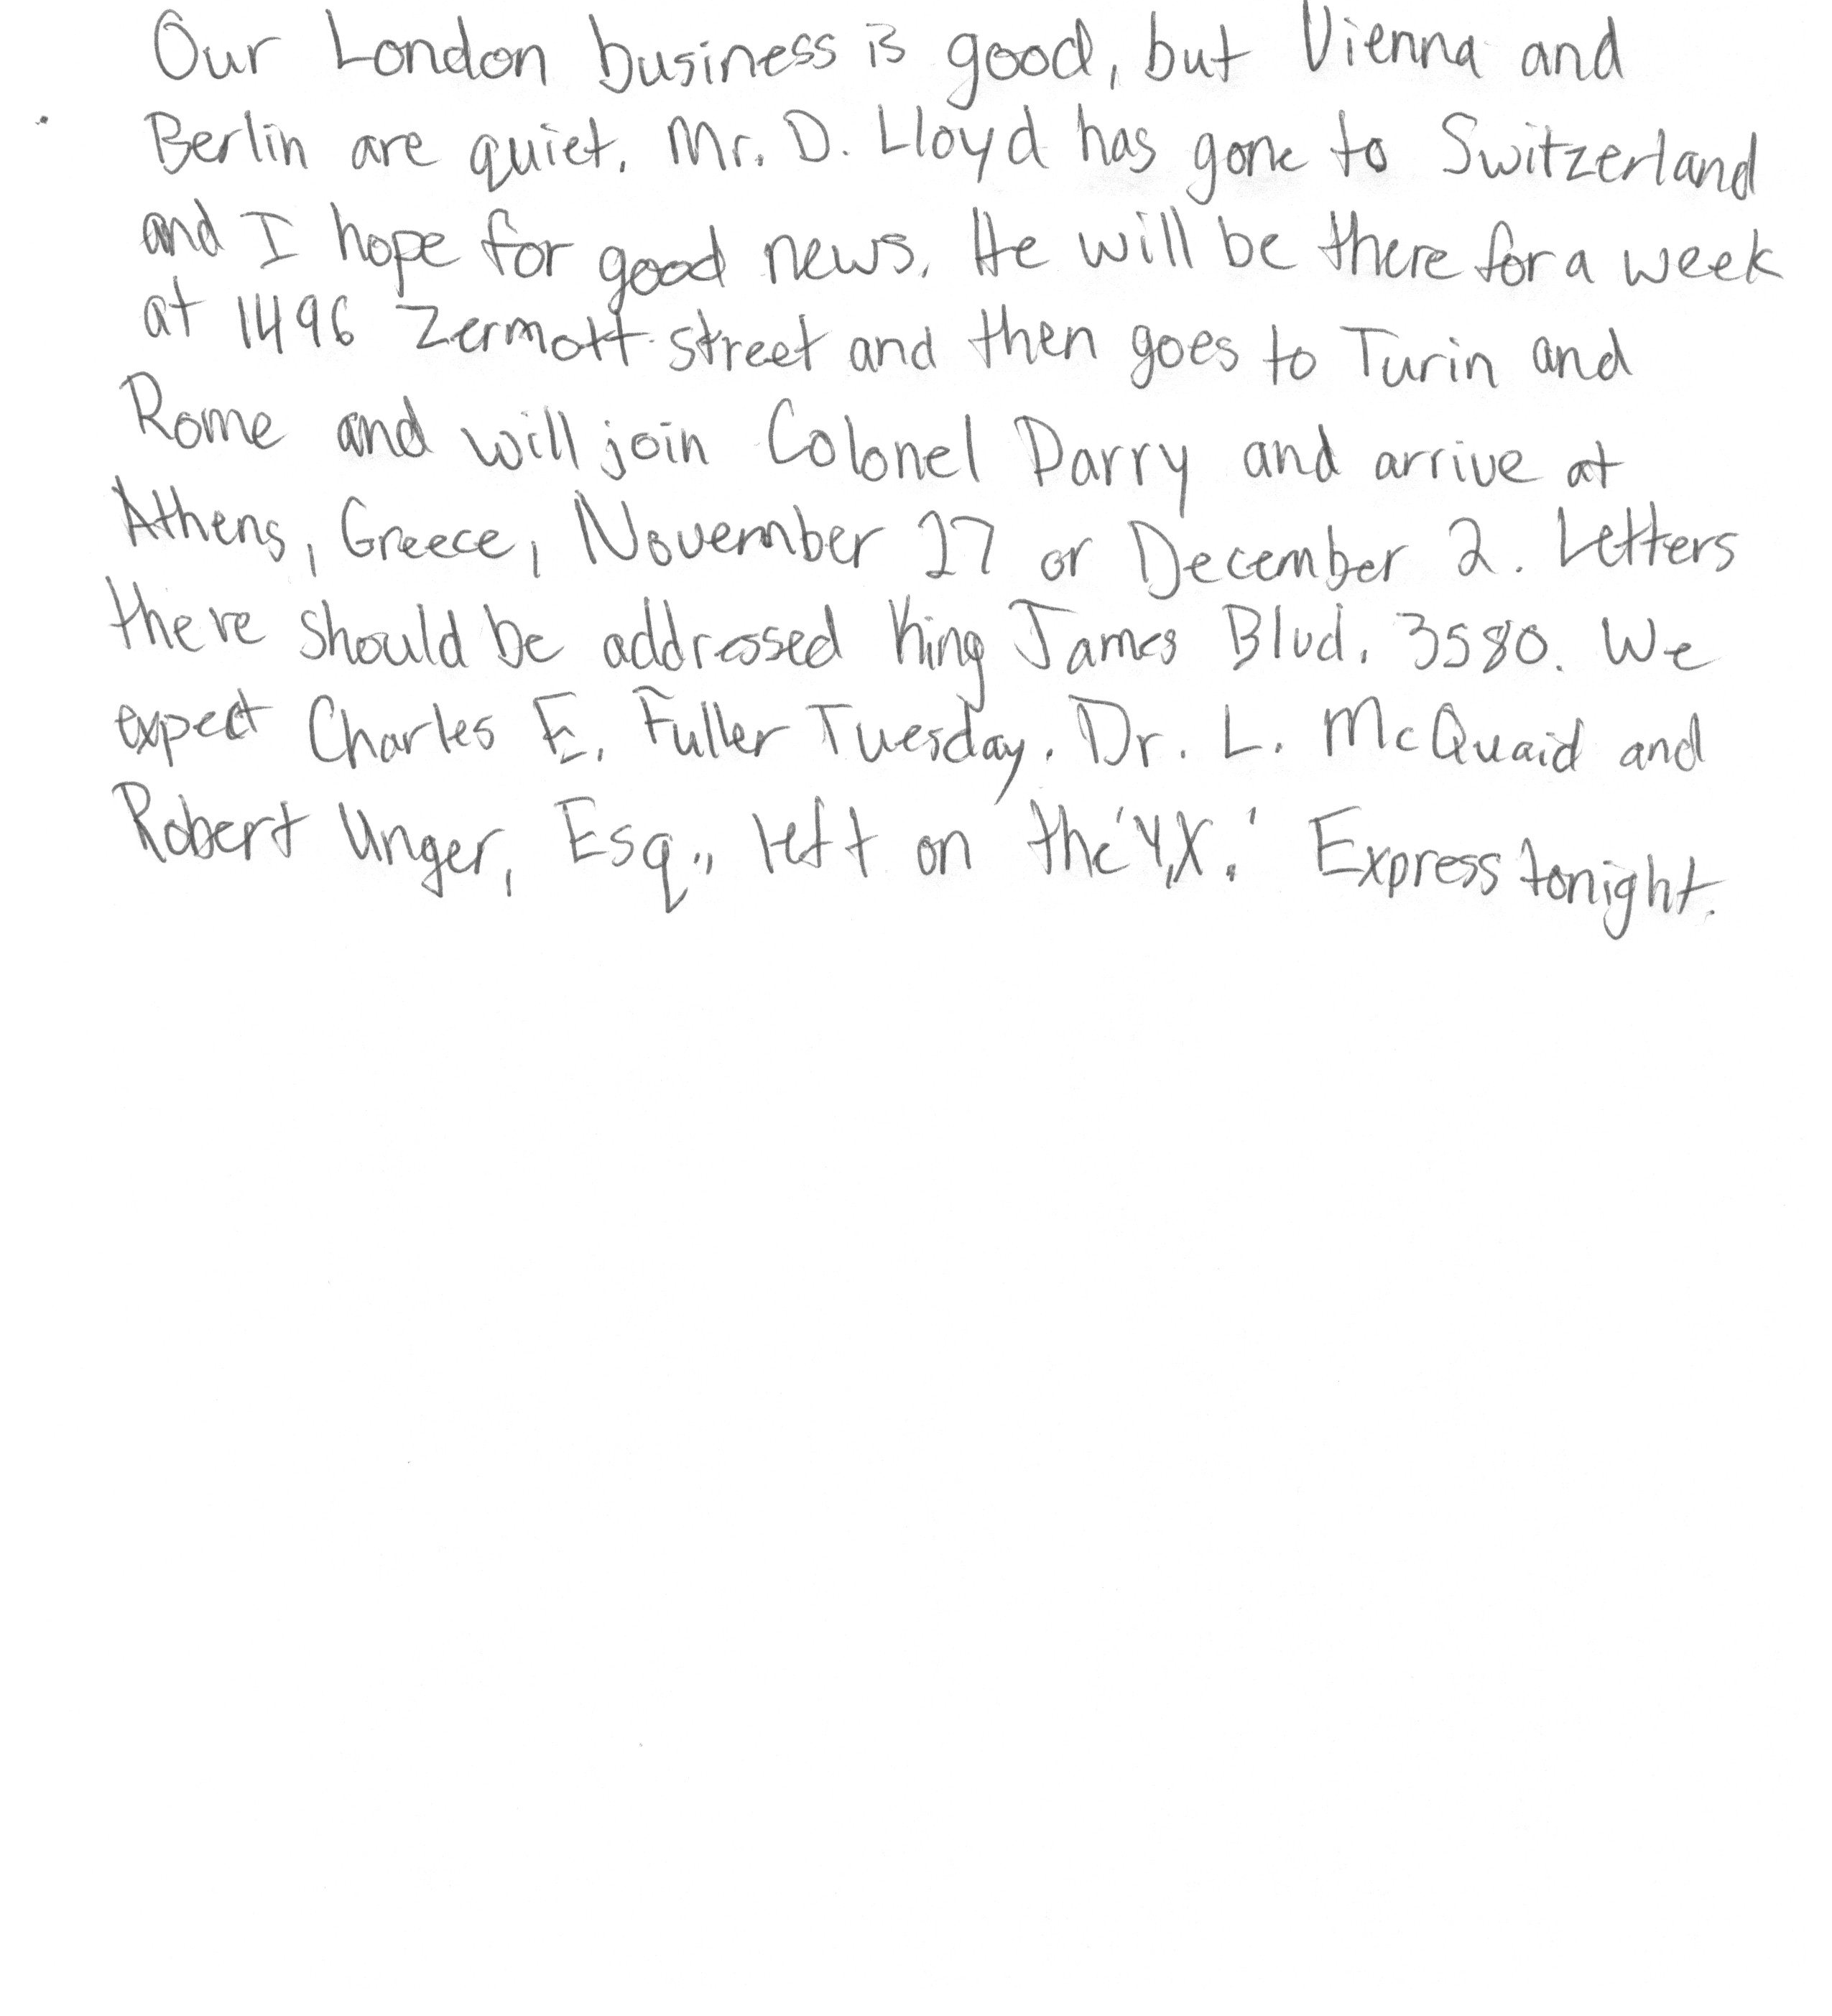 Our London business is good, but Vienna and
Berlin are quiet. Mr. D. Lloyd has gone to Switzerland
and I hope for good news. He will be there for a week
at 1496 Zermott street and then goes to Turin and
Rome and will join Colonel Parry and arrive at
Athens, Greece, November 27 or December 2. Letters
there should be addressed King James Blvd. 3580. We
expect Charles E. Fuller Tuesday. Dr. L. McQuaid and
Robert Unger, Esq., left on the 'Y.X.' Express tonight.